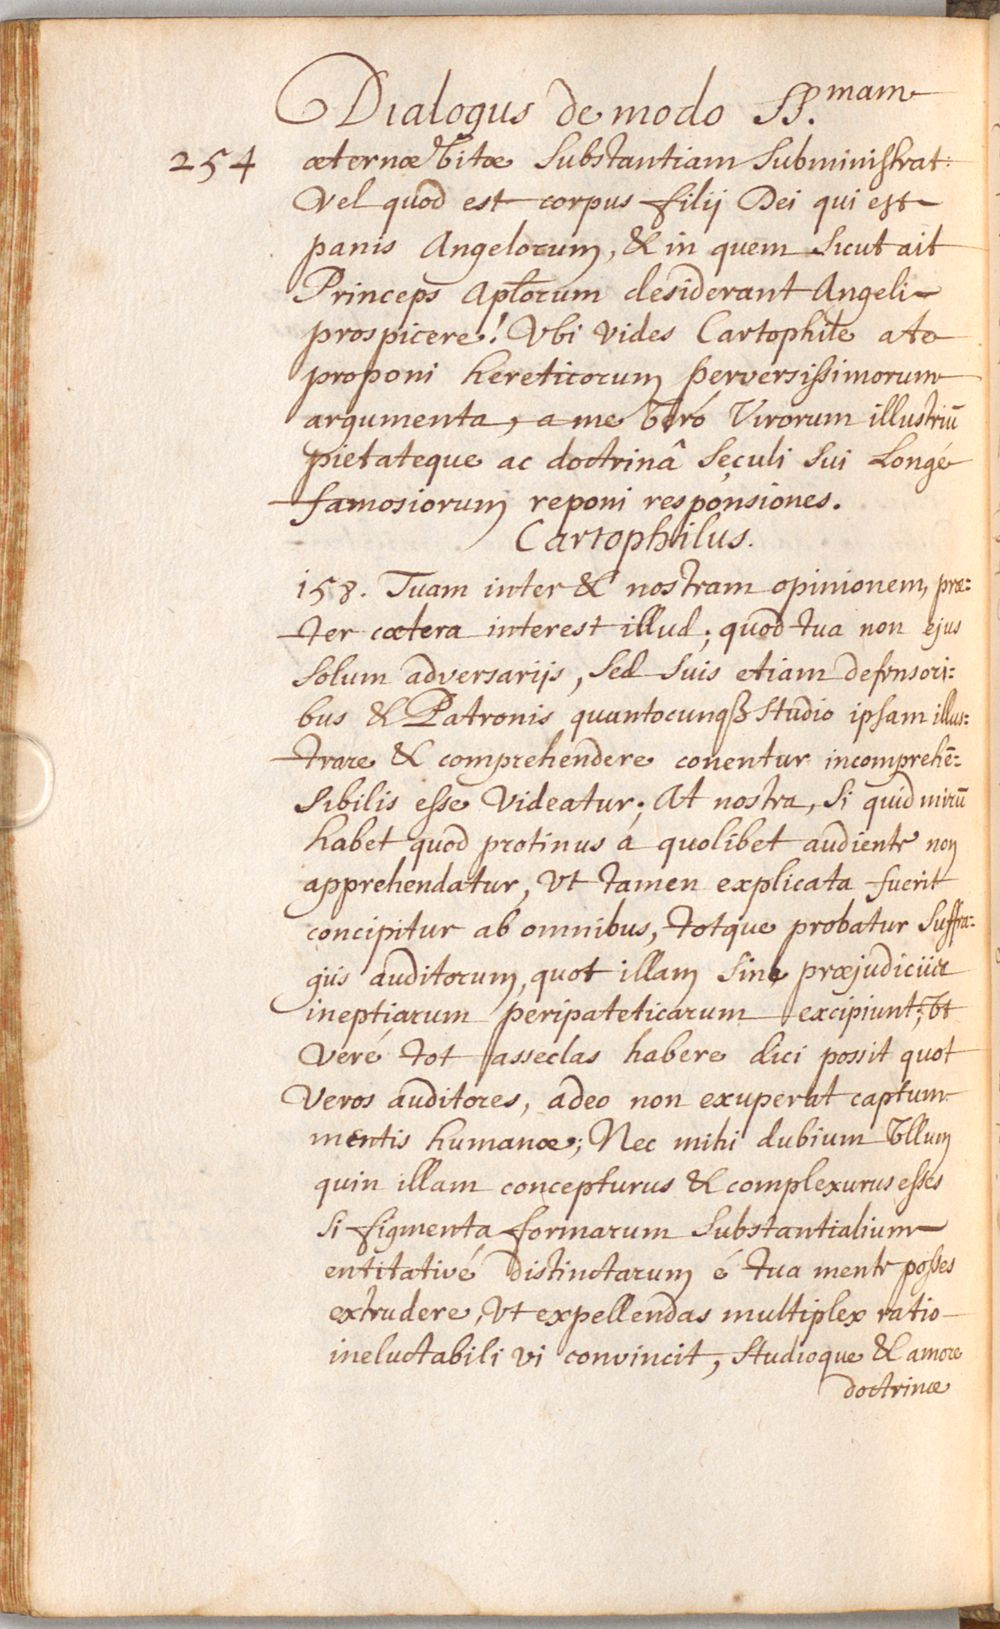 Dialogus de modo SS.mam
254 æternæ vitæ substantiam subministrat:
vel quod est corpus filij Dei qui est
panis Angelorum, & in quem sicut ait
Princeps Aptorum desiderant Angeli
prospicere! Vbi vides Cartophile a te
proponi hereticorum perversissimorum
argumenta, a me veró Virorum illustriū
pietateque ac doctrinâ seculi sui longé
famosiorum reponi responsiones.
Cartophilus.
158. Tuam inter & nostram opinionem, præ:
ter cætera interest illud; quod tua non ejus
solum adversarijs, sed suis etiam defensori:
bus & Patronis quantocunqꝫ studio ipsam illus:
trare & comprehendere conentur incomprehē:
sibilis esse videatur; At nostra, si quid mirū
habet quod protinus a quolibet audiente non
apprehendatur, vt tamen explicata fuerit
concipitur ab omnibus, totque probatur suffra:
gijs auditorum, quot illam sine præjudicijs
ineptiarum peripateticarum excipiunt; vt
veré tot asseclas habere dici possit quot
veros auditores, adeo non exuperat captum
mentis humanæ; Nec mihi dubium vllum
quin illam concepturus & complexurus esses
si figmenta formarum substantialium
entitativé distinctarum é tua mente posses
extrudere, vt expellendas multiplex ratio
ineluctabili vi convincit, studioque & amore
doctrinæ